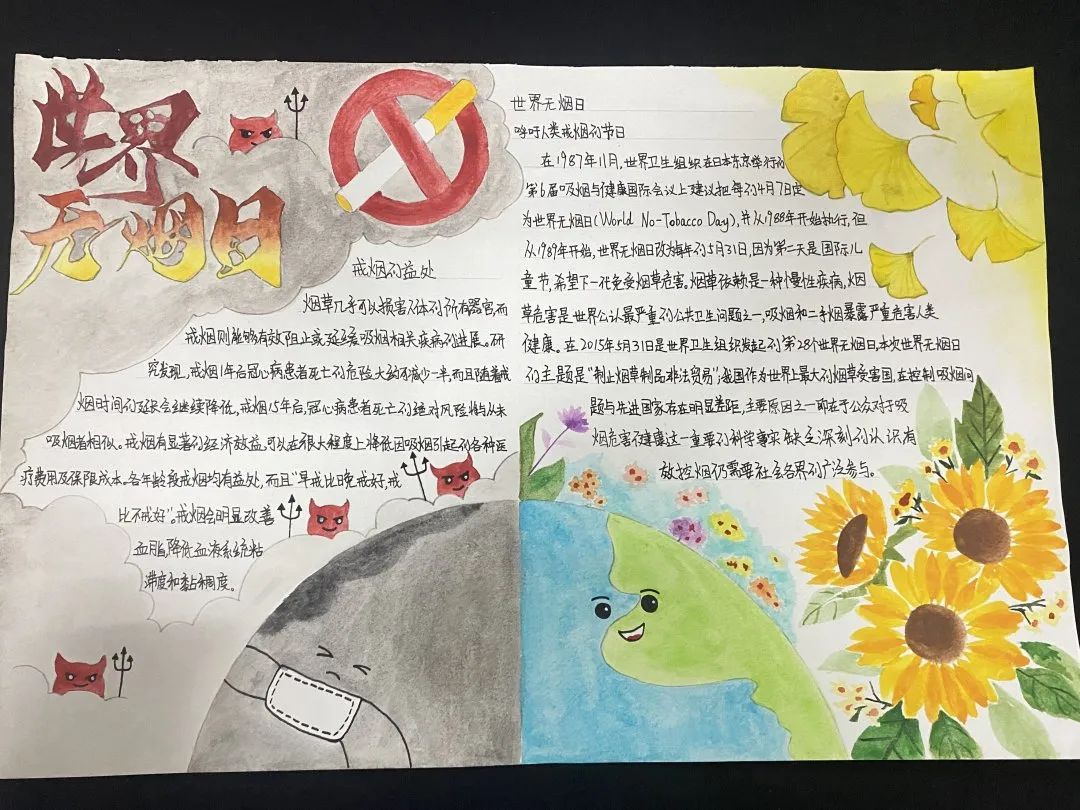 世界
无烟日
戒烟的益处
烟草几乎可以损害人体的所有器官,而
戒烟则能够有效阻止或延缓吸烟相关疾病的进展。研
究发现,戒烟1年后冠心病患者死亡的危险大约可减少一半,而且随着戒
烟时间的延长会继续降低,戒烟15年后,冠心病患者死亡的绝对风险将与从未
吸烟者相似。戒烟有显著的经济效益,可以在很大程度上降低因吸烟引起的各种医
疗费用及保险成本。各年龄段戒烟均有益处,而且"早戒比晚戒好,戒
比不戒好"。戒烟会明显改善
血脂,降低血液系统粘
滞度和黏稠度。
世界无烟日
呼吁人类戒烟的节日
在1987年11月,世界卫生组织在日本东京举行的
第6届吸烟与健康国际会议上建议把每年的4月7日定
为世界无烟日(World No-Tobacco Day),并从1988年开始执行,但
从1989年开始,世界无烟日改为每年的5月31日,因为第二天是国际儿
童节,希望下一代免受烟草危害。烟草依赖是一种慢性疾病,烟
草危害是世界公认最严重的公共卫生问题之一,吸烟和二手烟暴露严重危害人类
健康。在2015年5月31日是世界卫生组织发起的第28个世界无烟日,本次世界无烟日
的主题是"制止烟草制品非法贸易";我国作为世界上最大的烟草受害国,在控制吸烟问
题与先进国家存在明显差距,主要原因之一即在于公众对于吸
烟危害健康这一重要的科学事实缺乏深刻的认识有
效控烟仍需要社会各界的广泛参与。